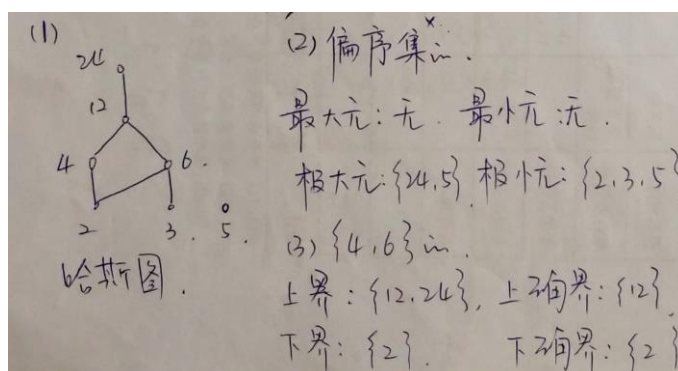 (1)
24
12
4
6.
2
3.
5.
哈斯图.
(2) 偏序集中.
最大元: 无. 最小元: 无.
极大元: {24,5}. 极小元: {2,3,5}
(3) {4,6}中.
上界: {12,24}, 上确界: {12}.
下界: {2}. 下确界: {2}